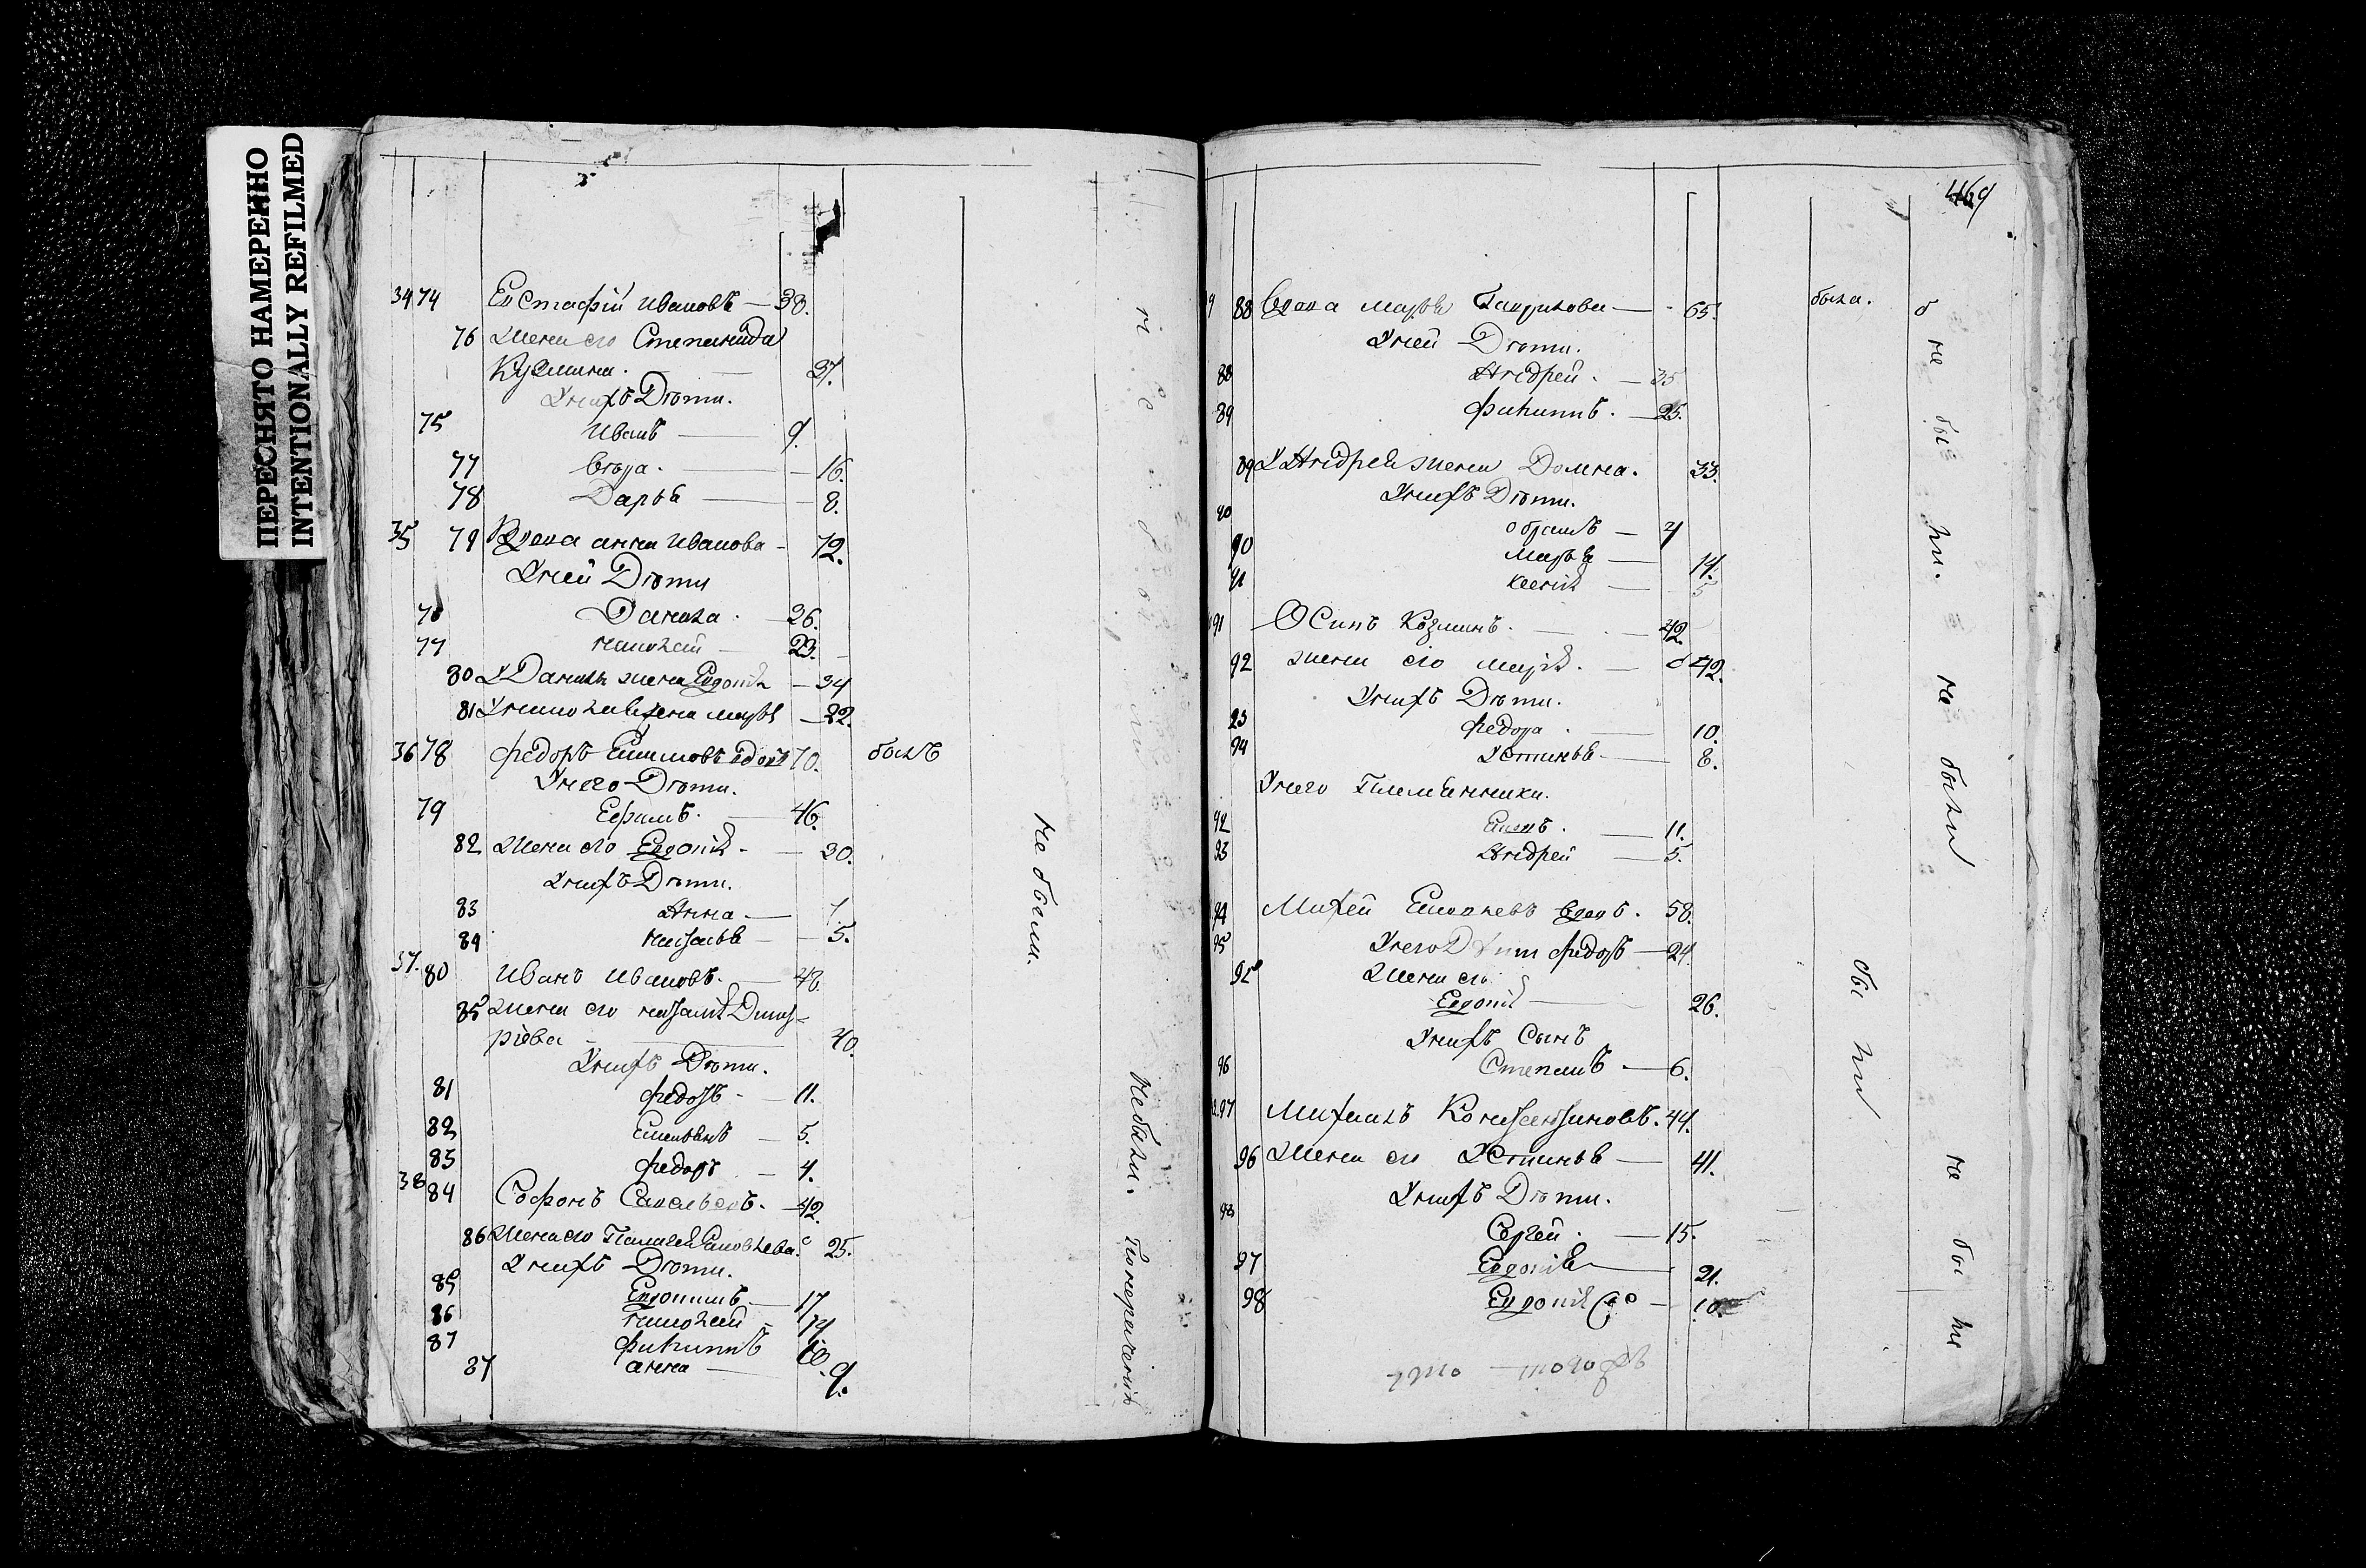 ПЕРЕСНЯТО НАМЕРЕННО
INTENTIONALLY REFILMED
34 74 Евстафiй Ивановъ — 38.
76 Жена его Степанида
Кузмина. — 37.
У нихъ Дѣти.
75 Иванъ — 9.
77 — 16.
78 Дарья — 8.
35 79 Вдова анна Иванова - 72.
У ней Дѣти
76 Данила. 26.
77 тимофей — 23.
80 У Данилы жена Евдокiя — 24
81 У тимофея жена марья — 22.
36 78 федоръ 70. былъ
У него Дѣти.
79 Ефимъ. — 46.
82 Жена его Евдокiя - — 30.
У нихъ Дѣти.
83 Анна — 7.
84 наталья — 5.
37. 80 Иванъ Ивановъ. — 48.
85 Жена его наталiя Дмит-
рiева — 40.
У нихъ Дѣти.
81 федотъ - — 11.
82 Емельянъ — 5.
83 федоръ — 4.
38 84 Софонъ Савельевъ. — 42.
86 Жена его Палагея 25.
У нихъ Дѣти.
85 Евдокимъ — 17
86 тимофей - 14
87 филиппъ 10.
87 анна — 9.
не были.
не были.
469
88 Вдова марья — 65. была.
У ней Дѣти.
88 Андрей. — 35
89 филиппъ. — 25.
89 У Андрея жена Домна. 33.
У нихъ Дѣти.
90
90 Марья — 14.
91 Ксенiя — 5
91 Осипъ Козминъ. — 42.
92 жена его марiя. — 42.
У нихъ Дѣти.
93 федора. — 10.
94 Устинья. — 8.
У него Племянники.
92 — 11.
93 Андрей — 5.
94 Михей вдовъ. 58.
95 У него Дѣти федотъ — 24.
95 Жена его
Евдокiя — 26.
У нихъ Сынъ
96 Степанъ — 6.
97 Михаилъ Константиновъ. 44.
96 Жена его Устинья — 41.
У нихъ Дѣти.
98 Сергей. — 15.
97 Евдокiя — 21.
98 Евдокiя — 10.
не были.
не были
были
не были